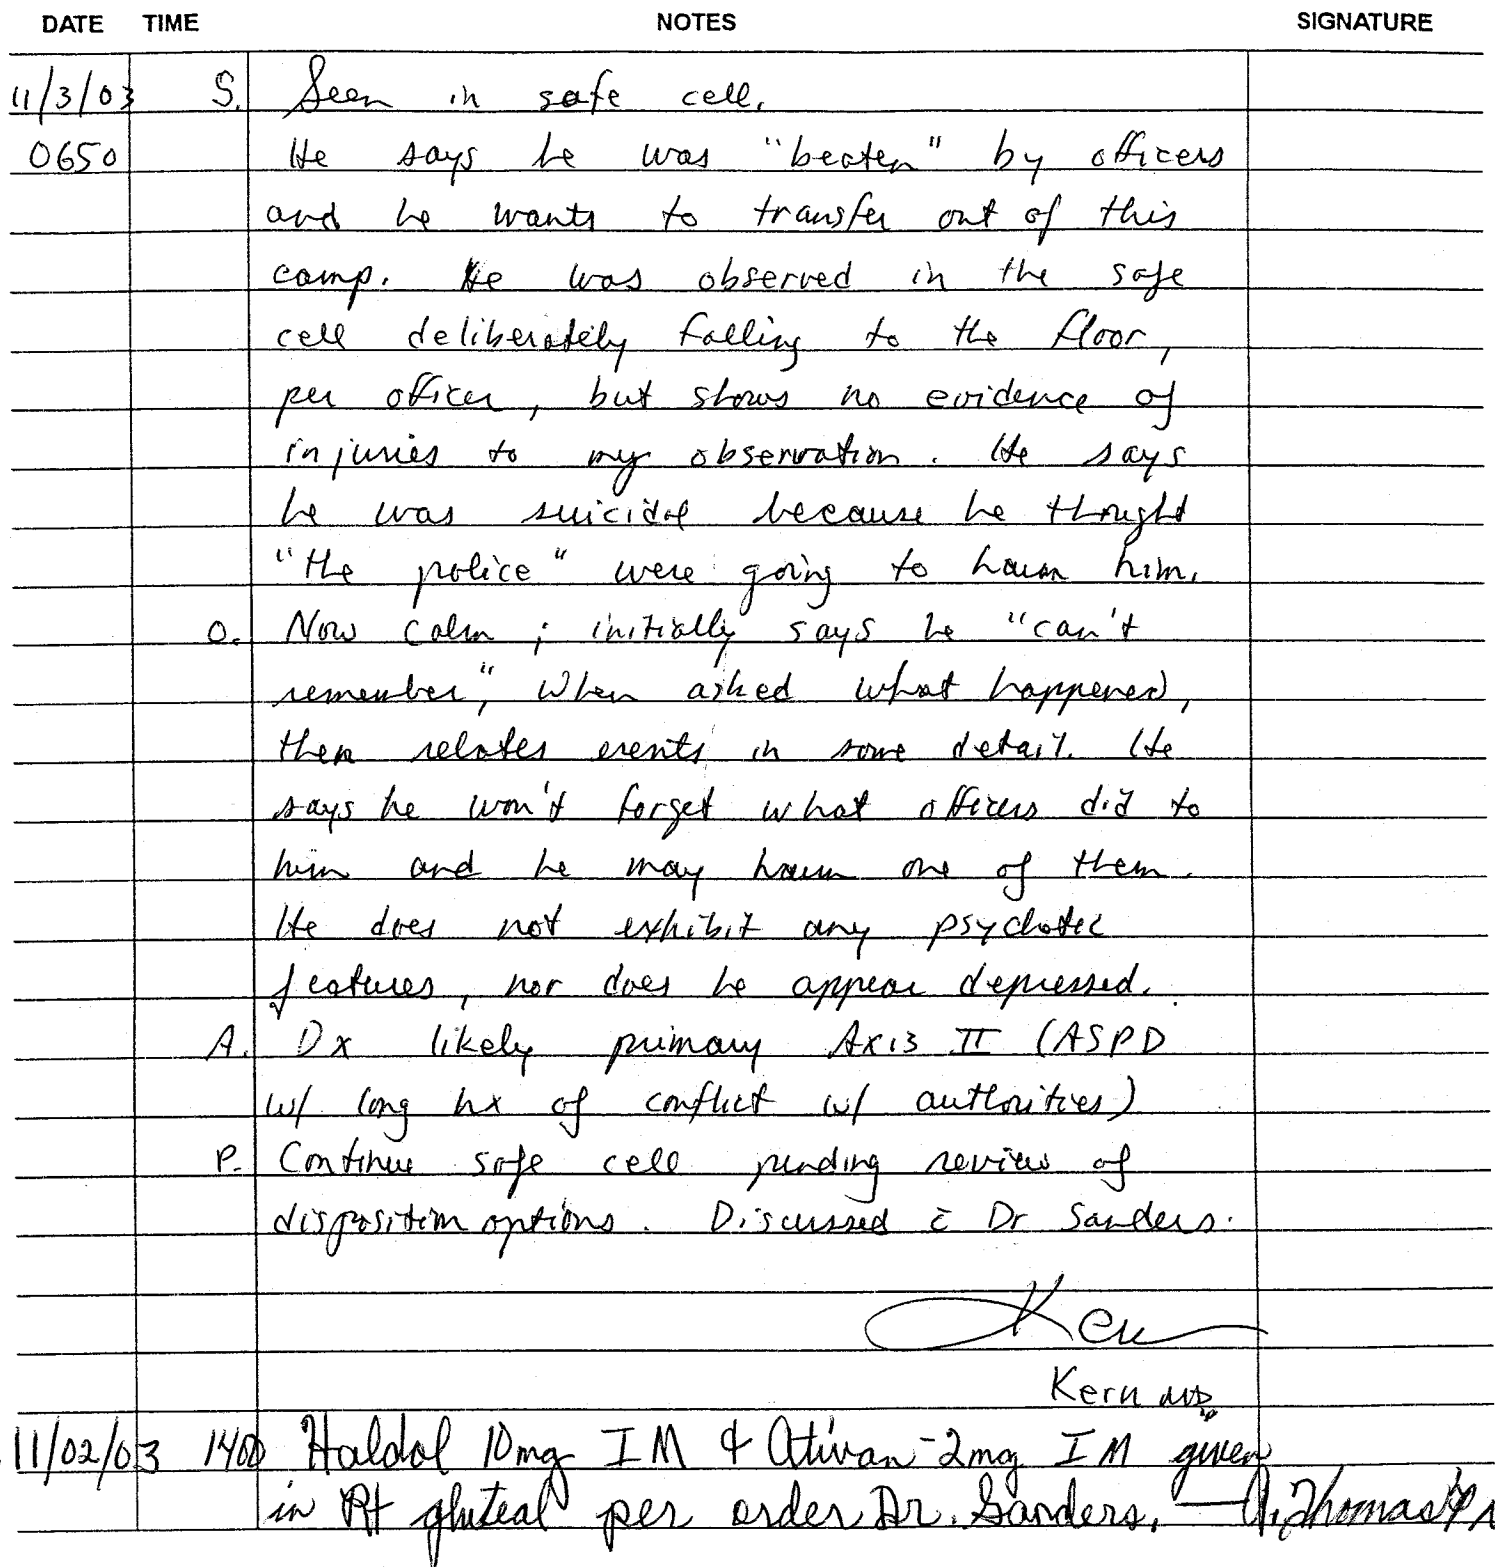 DATE TIME NOTES SIGNATURE
11/3/03 S. Seen in safe cell.
0650 He says he was "beaten" by officers
and he wants to transfer out of this
camp. He was observed in the safe
cell deliberately falling to the floor,
per officer, but shows no evidence of
injuries to my observation. He says
he was suicidal because he thought
"the police" were going to harm him.
O. Now calm; initially says he "can't
remember", when asked what happened,
then relates events in some detail. He
says he won't forget what officers did to
him and he may harm one of them.
He does not exhibit any psychotic
features, nor does he appear depressed.
A. Dx likely primary Axis II (ASPD
w/ long hx of conflict w/ authorities)
P. Continue safe cell pending review of
disposition options. Discussed c̄ Dr Sanders.
Kern
Kern MD
11/02/03 1400 Haldol 10mg IM & Ativan-2mg IM given
in Rt gluteal per order Dr. Sanders. — Thomas